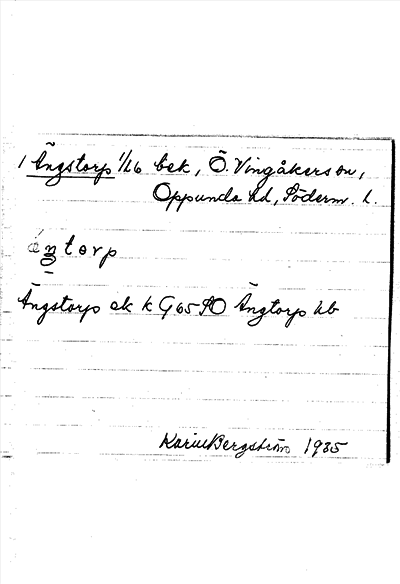 1 Ängstorp 1/26 bek, Ö. Vingåkers sn,
Oppunda hd, Söderm. l.
torp
Ängstorp ek k G 65 SO Ängtorp hb
Karin Bergström 1935